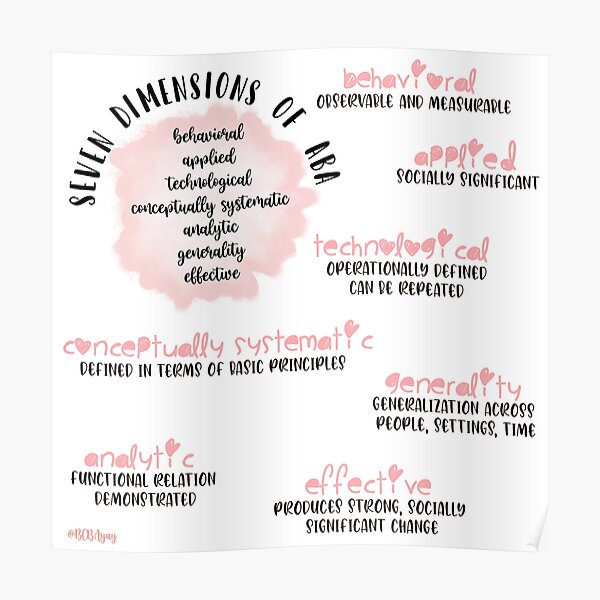 SEVEN DIMENSIONS OF ABA
behavioral
applied
technological
conceptually systematic
analytic
generality
effective
behavioral
OBSERVABLE AND MEASURABLE
applied
SOCIALLY SIGNIFICANT
technological
OPERATIONALLY DEFINED
CAN BE REPEATED
conceptually systematic
DEFINED IN TERMS OF BASIC PRINCIPLES
generality
GENERALIZATION ACROSS
PEOPLE, SETTINGS, TIME
analytic
FUNCTIONAL RELATION
DEMONSTRATED
effective
PRODUCES STRONG, SOCIALLY
SIGNIFICANT CHANGE
@BCBAyay